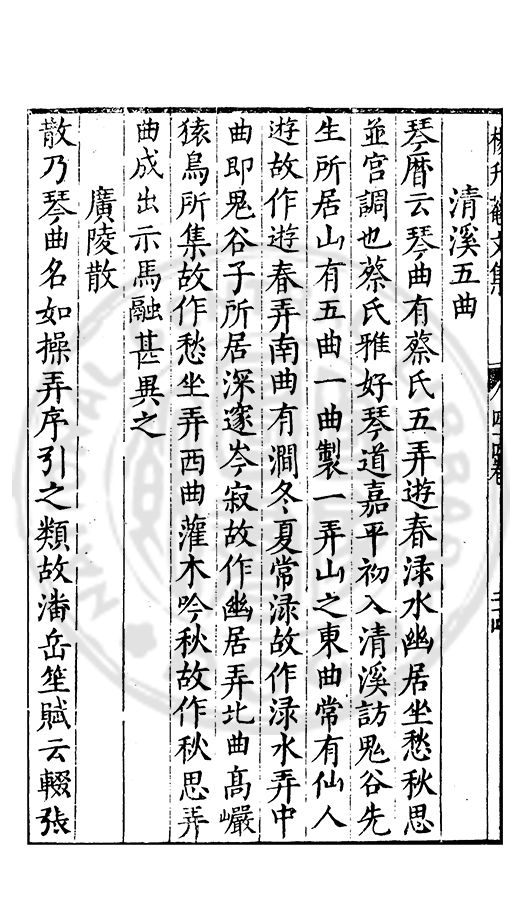 楊升菴文集
四十四卷
清溪五曲
琴曆云琴曲有蔡氏五弄遊春渌水幽居坐愁秋思
並宫調也蔡氏雅好琴道嘉平初入清溪訪鬼谷先
生所居山有五曲一曲製一弄山之東曲常有仙人
遊故作遊春弄南曲有澗冬夏常渌故作渌水弄中
曲即鬼谷子所居深邃岑寂故作幽居弄北曲高巖
猿鳥所集故作愁坐弄西曲灌木吟秋故作秋思弄
曲成出示馬融甚異之
廣陵散
散乃琴曲名如操弄序引之類故潘岳笙賦云輟張